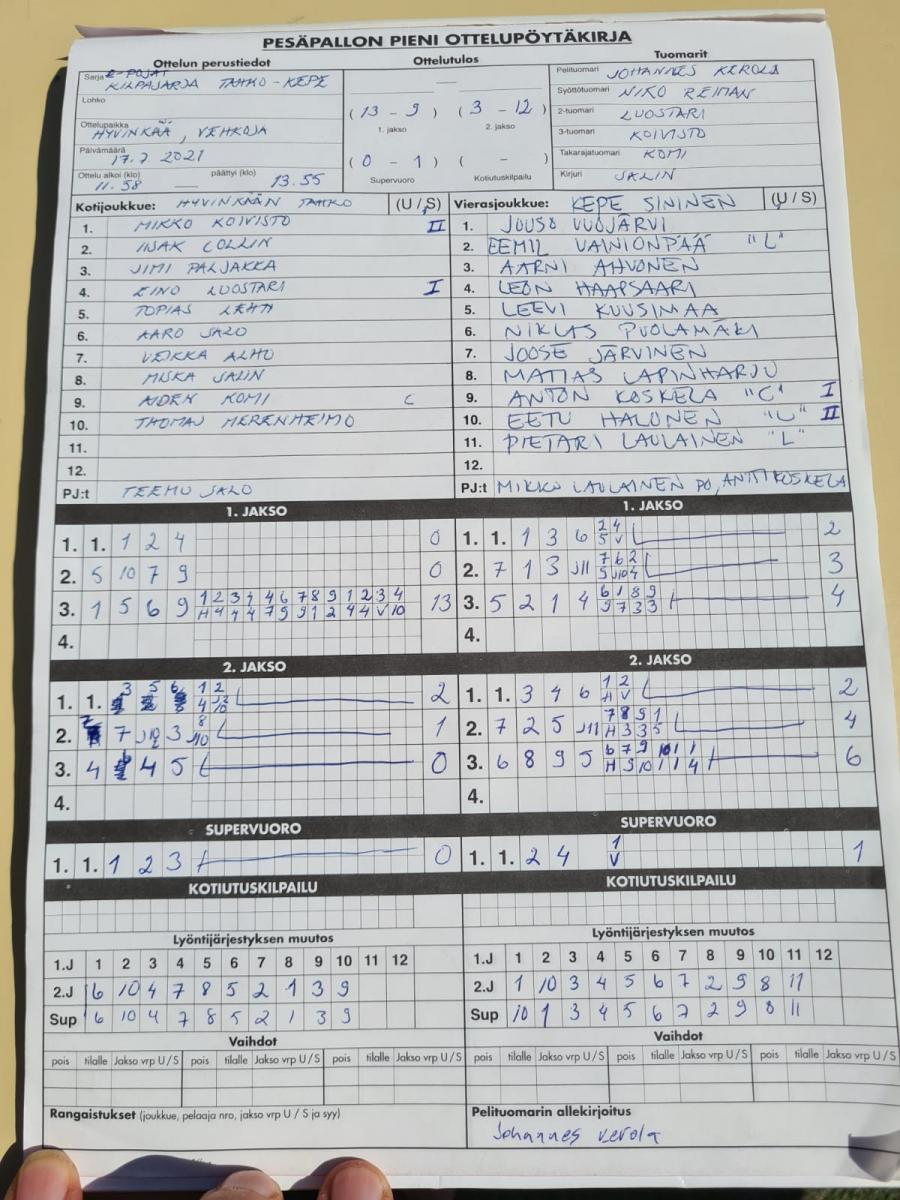 PESÄPALLON PIENI OTTELUPÖYTÄKIRJA
Ottelun perustiedot
Sarja E-POJAT
KILPASARJA TAHKO - KEPE
Lohko
Ottelupaikka
HYVINKÄÄ, VEHKOJA
Päivämäärä
17.7.2021
Ottelu alkoi (klo) päättyi (klo)
11.58 — 13.55
Ottelutulos
(13 - 9) (3 - 12)
1. jakso 2. jakso
(0 - 1) ( - )
Supervuoro Kotiutuskilpailu
Tuomarit
Pelituomari JOHANNES KEROLA
Syöttötuomari NIKO REIMAN
2-tuomari LUOSTARI
3-tuomari KOIVISTO
Takarajatuomari KOMI
Kirjuri SALIN
Kotijoukkue: HYVINKÄÄN TAHKO (U / S)
1. MIKKO KOIVISTO II
2. IISAK COLLIN
3. JIMI PALJAKKA
4. EINO LUOSTARI I
5. TOPIAS LEHTI
6. AARO SALO
7. VEIKKA ALHO
8. MISKA SALIN
9. AIDEN KOMI C
10. THOMAS MERENHEIMO
11.
12.
PJ:t TEEMU SALO
Vierasjoukkue: KEPE SININEN (U / S)
1. JOUSO VUOJÄRVI
2. EEMIL VAINIONPÄÄ "L"
3. AARNI AHVONEN
4. LEON HAAPSAARI
5. LEEVI KUUSIMAA
6. NIKLAS PUOLAMÄKI
7. JOOSE JÄRVINEN
8. MATIAS LAPINHARJU
9. ANTON KOSKELA "C" I
10. EETU HALONEN "L" II
11. PIETARI LAULAINEN "L"
12.
PJ:t MIKKO LAULAINEN PO, ANTTI KOSKELA
1. JAKSO
1. 1. 1 2 4 0
2. 5 10 7 9 0
3. 1 5 6 9 13
1 2 3 4 4 6 7 8 9 1 2 3 4
H 4 4 4 7 9 9 1 2 4 4 V 10
4.
1. JAKSO
1. 1. 1 3 6 2
2 4
5 V
2. 7 1 3 J11 3
7 6 2
9 J10 4
3. 5 2 1 4 4
6 1 8 9
9 7 3 3
4.
2. JAKSO
1. 1. 3 5 6 2
1 2
2. 7 J10 3 J10 1
8
3. 4 4 5 0
4.
2. JAKSO
1. 1. 3 4 6 2
1 2
H V
2. 7 2 5 J11 4
7 8 9 1
H 3 3 5
3. 6 8 9 5 6
6 7 9 10 1 1
H 9 10 1 1 4
4.
SUPERVUORO
1. 1. 1 2 3 0
SUPERVUORO
1
1. 1. 2 4 V 1
KOTIUTUSKILPAILU
KOTIUTUSKILPAILU
Lyöntijärjestyksen muutos
1.J 1 2 3 4 5 6 7 8 9 10 11 12
2.J 6 10 4 7 8 5 2 1 3 9
Sup 6 10 4 7 8 5 2 1 3 9
Lyöntijärjestyksen muutos
1.J 1 2 3 4 5 6 7 8 9 10 11 12
2.J 1 10 3 4 5 6 7 2 9 8 11
Sup 10 1 3 4 5 6 7 2 9 8 11
Vaihdot
pois tilalle Jakso vrp U / S pois tilalle Jakso vrp U / S pois tilalle Jakso vrp U / S
Vaihdot
pois tilalle Jakso vrp U / S pois tilalle Jakso vrp U / S pois tilalle Jakso vrp U / S
Rangaistukset (joukkue, pelaaja nro, jakso vrp U / S ja syy)
Pelituomarin allekirjoitus
Johannes Kerola